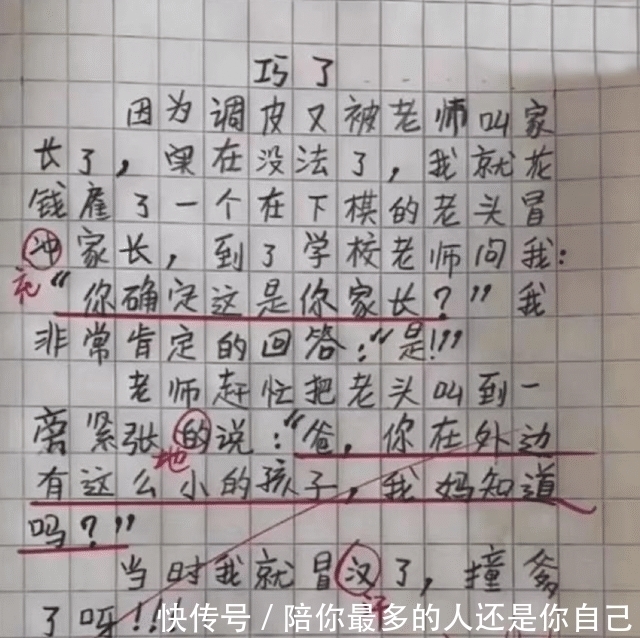 巧了
因为调皮又被老师叫家
长了，实在没法了，我就花
钱雇了一个在下棋的老头冒
冲家长，到了学校老师问我：
充
“你确定这是你家长？”我
非常肯定的回答：“是!!!”
老师赶忙把老头叫到一
旁紧张的说：“爸，你在外边
地
有这么小的孩子，我妈知道
吗？”
当时我就冒汉了，撞爹
了呀!!!
快传号/陪你最多的人还是你自己